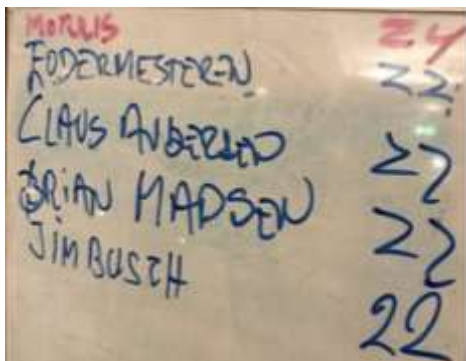 MORRIS 24
FODERMESTEREN 22
CLAUS ANDERSEN 22
BRIAN MADSEN 22
JIM BUSCH 22